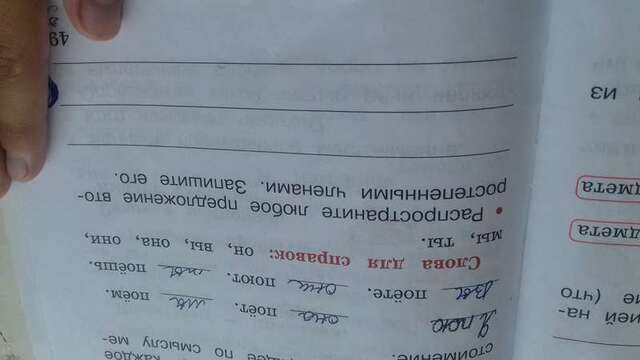 каждое
по смыслу ме-
стоимение.
Я пою она поёт. мы поём.
Вы поёте. они поют. ты поёшь.
Слова для справок: он, вы, она, они,
мы, ты.
• Распространите любое предложение вто-
ростепенными членами. Запишите его.
49
ией на-
е (что
дмета
дмета
из